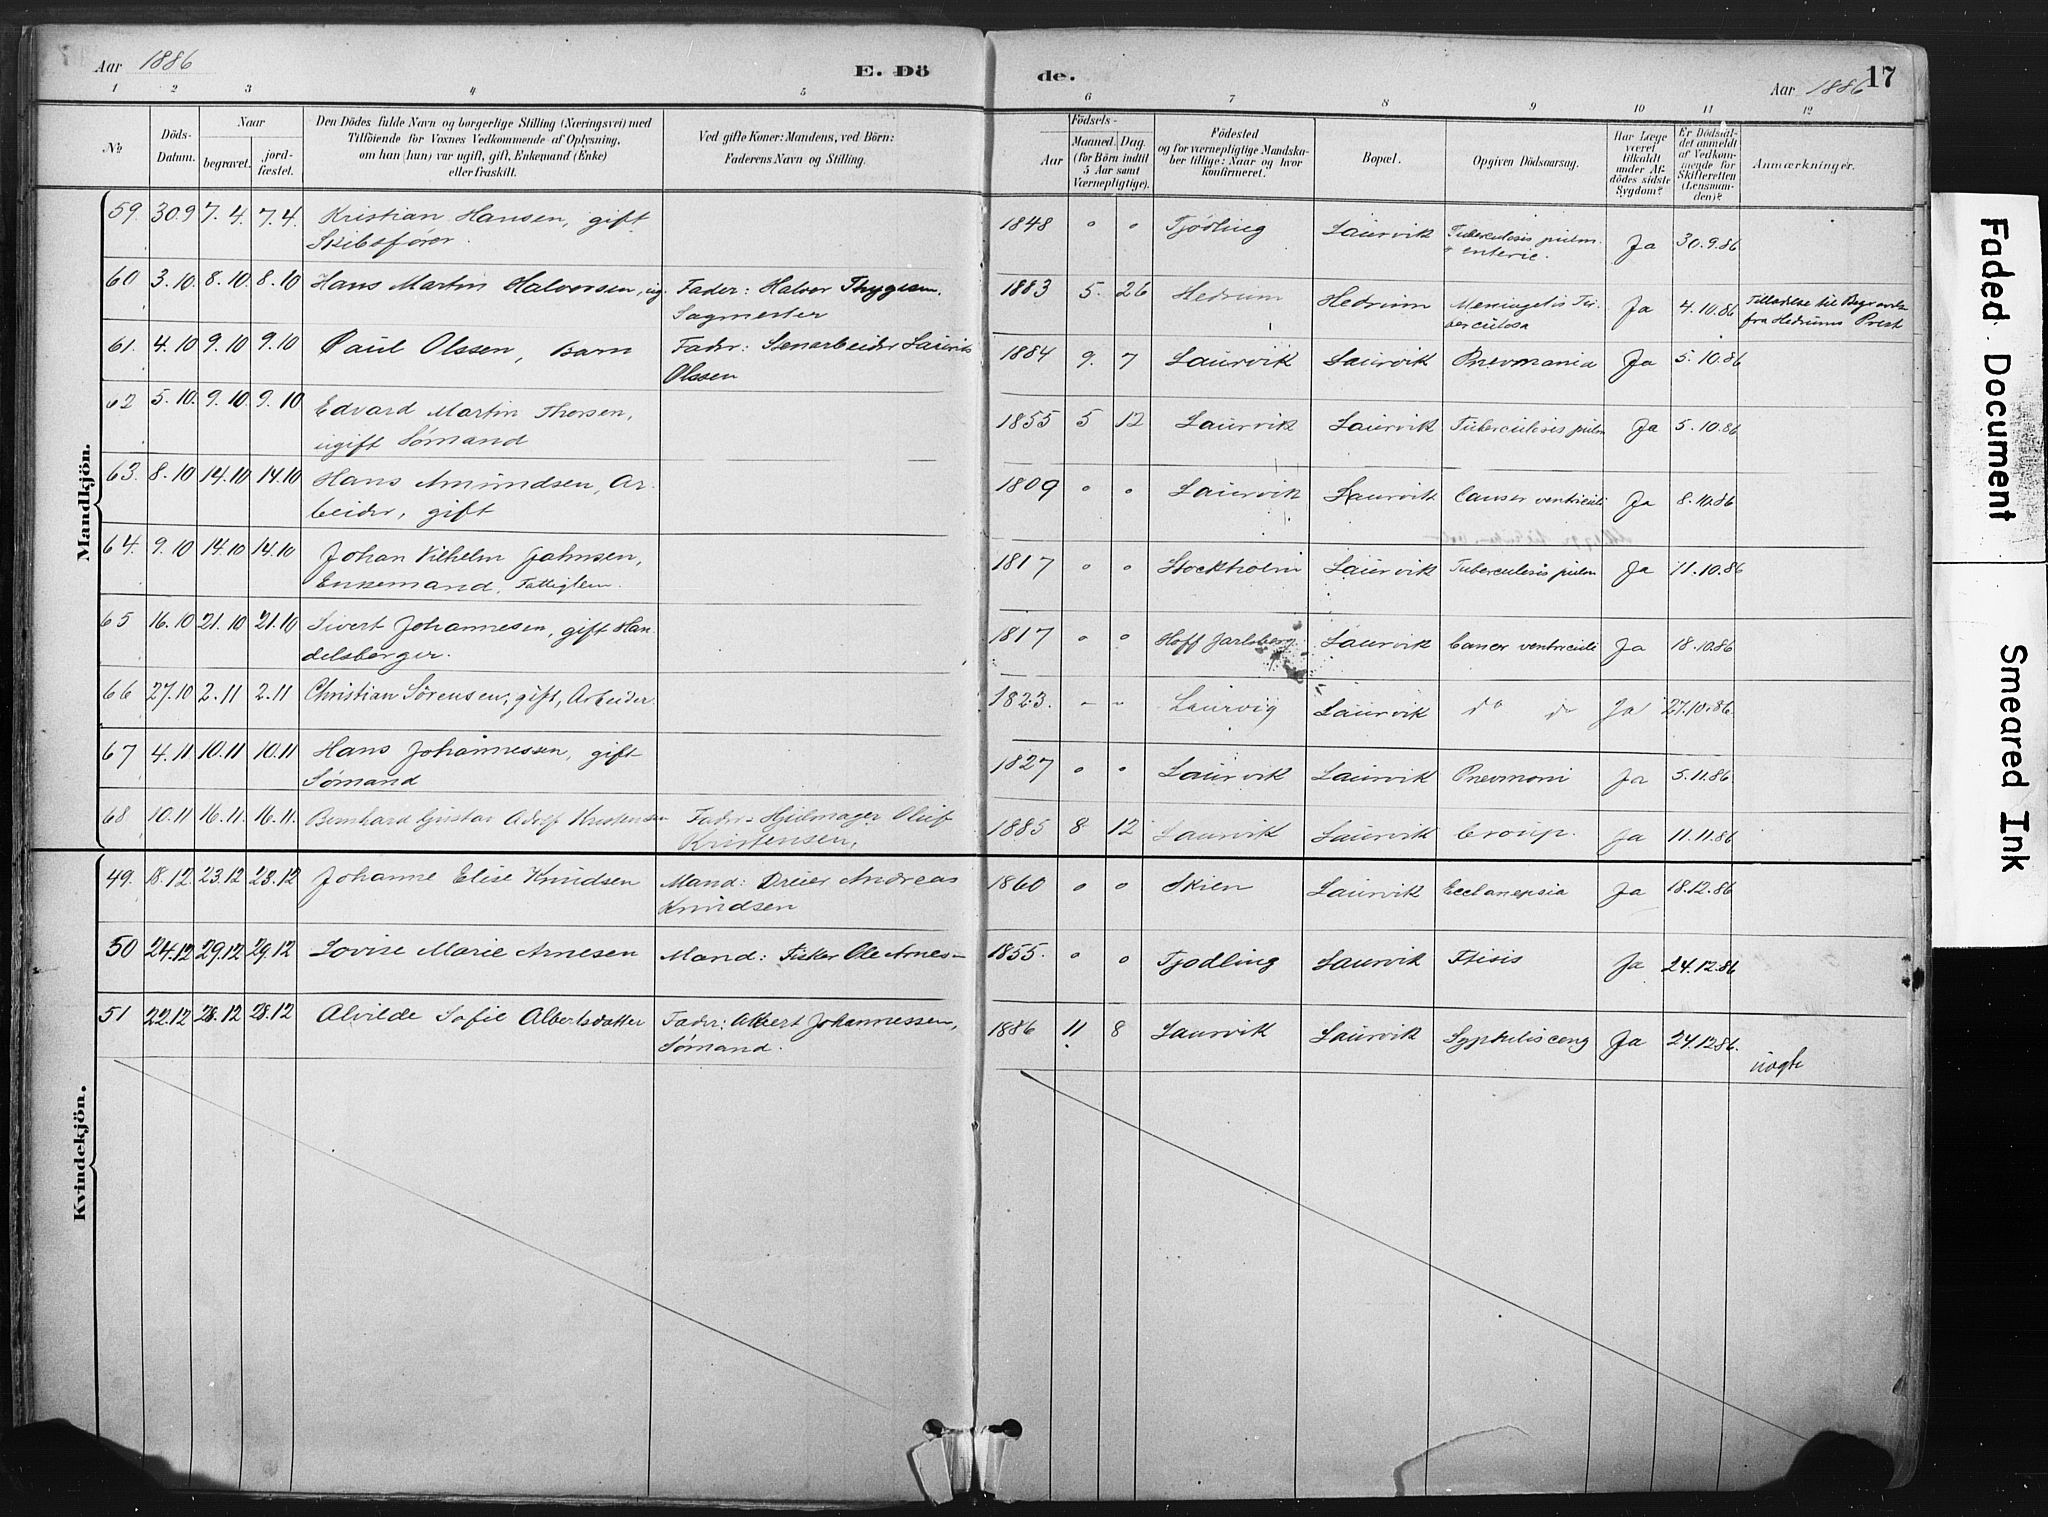 Aar 1886 E. Dö
de. Aar 1886 17
1 2 3 4 5
6 7 8 9 10 11 12
№ Döds-Datum. Naar begravet. jord-fæstet. Den Dödes fulde Navn og borgerlige Stilling (Næringsvei) med Tilföiende for Voxnes Vedkommende af Oplysning, om han (hun) var ugift, gift, Enkemand (Enke) eller fraskilt. Ved gifte Koner: Mandens, ved Börn: Faderens Navn og Stilling.
Födsels- Aar Maaned. Dag. (for Börn indtil 5 Aar samt Værnepligtige). Födested og for værnepligtige Mandskaber tillige: Naar og hvor konfirmeret. Bopæl. Opgiven Dödsaarsag. Har Læge været tilkaldt under Afdödes sidste Sygdom? Er Dödsfaldet anmeldt af Vedkommende for Skifteretten (Lensmanden)? Anmærkninger.
Mandkjön.
59. 30.9 7.4. 7.4. Kristian Hansen, gift Skibsfører. 1848 " " Tjødling Laurvik Tuberculosis pulm. & enteric. Ja 30.9.86
60 3.10. 8.10 8.10 Hans Martin Halvorsen, ug. Fader: Halvor Thygesen. Sagmester 1883 5. 26 Hedrum Hedrum Meningetis Tuberculosa Ja 4.10.86 Tilladelse til Begravelse fra Hedrums Prest
61. 4.10 9.10 9.10 Paul Olssen, Barn Fader: Stenarbeider Lauritz Olssen 1884 9. 7 Laurvik Laurvik Pnevmania Ja 5.10.86
62 5.10. 9.10 9.10 Edvard Martin Thorsen, ugift Sømand 1855 5 12 Laurvik Laurvik Tuberculosis pulm Ja 5.10.86
63. 8.10 14.10 14.10 Hans Amundsen, Arbeider, gift 1809 " " Laurvik Laurvik Canser ventriculi Ja 8.10.86
64. 9.10 14.10 14.10 Johan Vilhelm Jahnsen, Enkemand, Fattiglem. 1817 " " Stockholm Laurvik Tuberculosis pulm Ja 11.10.86
65 16.10 21.10 21.10 Sivert Johannesen, gift Handelsborger. 1817 " " Hoff Jarlsberg. Laurvik Cancer ventriculi Ja 18.10.86
66 27.10 2.11 2.11 Christian Sørensen, gift, Arbeider. 1823. " " Laurvig Laurvik do do Ja 27.10.86.
67 4.11 10.11 10.11 Hans Johannessen, gift Sømand 1827 " " Laurvik Laurvik Pnevmoni Ja 5.11.86
68 10.11 16.11. 16.11. Bernhard Gustav Adolf Kristensen Fader: Hjulmager Oluf Kristensen. 1885 8 12 Laurvik Laurvik Croup. Ja 11.11.86
Kvindekjön.
49. 18.12. 23.12 23.12 Johanne Elise Knudsen Mand: Dreier Andreas Knudsen 1860 " " Skien Laurvik Ecclanepsia Ja 18.12.86
50 24.12 29.12 29.12 Lovise Marie Arnesen Mand: Fisker Ole Arnes- 1855. " " Tjødling Laurvik Ftisis Ja 24.12.86
51 22.12 28.12 28.12 Alvilde Sofie Albertsdatter Fader: Albert Johannessen, Sømand. 1886 11 8 Laurvik Laurvik Syphilis cong Ja 24.12.86. uægte
Faded Document
Smeared Ink